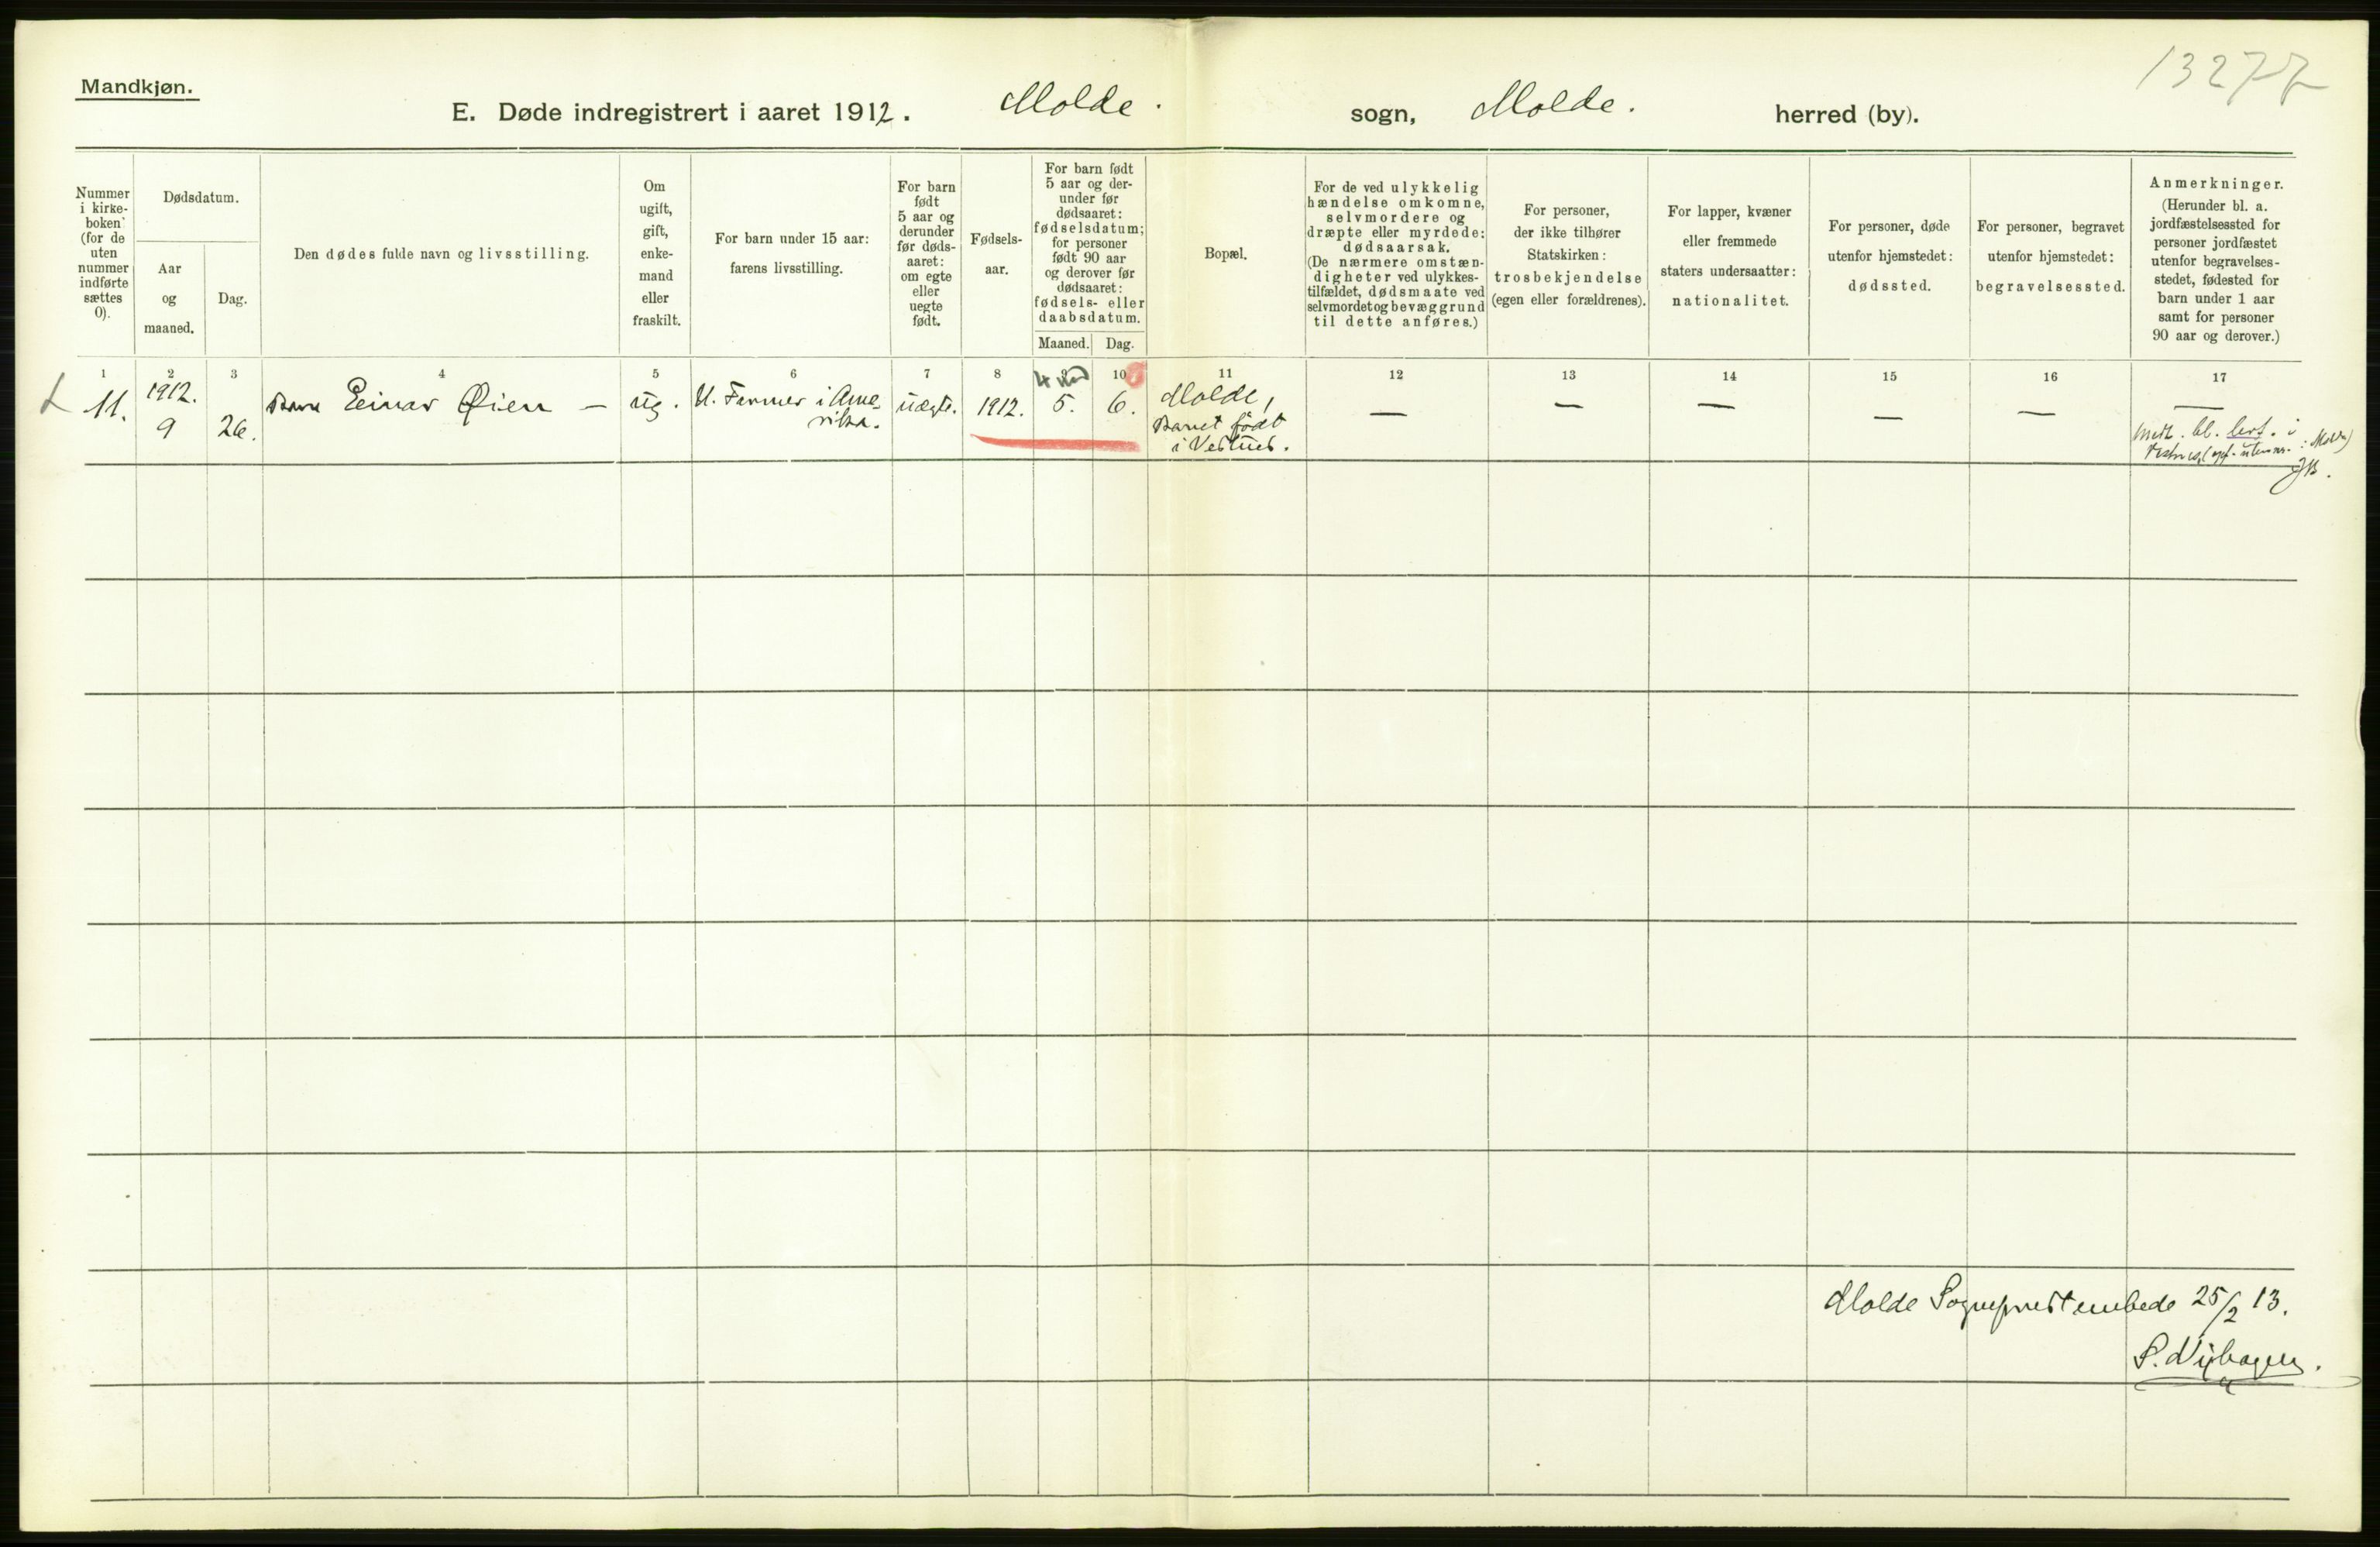 13277
Mandkjøn.
E. Døde indregistrert i aaret 1912. Molde. sogn, Molde. herred (by).
Nummer
i kirke-
boken
(for de
uten
nummer
indførte
sættes
0).
Dødsdatum.
Aar
og
maaned.
Dag.
Den dødes fulde navn og livsstilling.
Om
ugift,
gift,
enke-
mand
eller
fraskilt.
For barn under 15 aar:
farens livsstilling.
For barn
født
5 aar og
derunder
før døds-
aaret:
om egte
eller
uegte
født.
Fødsels-
aar.
For barn født
5 aar og der-
under før
dødsaaret:
fødselsdatum;
for personer
født 90 aar
og derover før
dødsaaret:
fødsels- eller
daabsdatum.
Maaned. Dag.
Bopæl.
For de ved ulykkelig
hændelse omkomne,
selvmordere og
dræpte eller myrdede:
dødsaarsak.
(De nærmere omstæn-
digheter ved ulykkes-
tilfældet, dødsmaate ved
selvmordet og bevæggrund
til dette anføres.)
For personer,
der ikke tilhører
Statskirken:
trosbekjendelse
(egen eller forældrenes).
For lapper, kvæner
eller fremmede
staters undersaatter:
nationalitet.
For personer, døde
utenfor hjemstedet:
dødssted.
For personer, begravet
utenfor hjemstedet:
begravelsessted.
Anmerkninger.
(Herunder bl. a.
jordfæstelsessted for
personer jordfæstet
utenfor begravelses-
stedet, fødested for
barn under 1 aar
samt for personer
90 aar og derover.)
1 2 3 4 5 6 7 8 9 10 11 12 13 14 15 16 17
4 md
11.
1912.
9
26.
Barn Einar Øien —
ug.
U. Farmer i Ame-
rika.
uægte.
1912.
5.
6.
Molde,
Barnet født
i Vestnes.
— — — — — —
JB.
Molde Sogneprestembede 25/2 13.